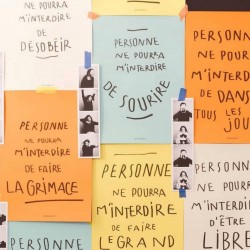 NE POURRA
M'INTERDIRE
DE
DÉSOBÉIR
PERSONNE
NE POURRA
M'INTERDIRE
DE SOURIRE
PERSONNE
NE POURRA
M'INTERDIRE
DE DANS
TOUS LES JOU
PERSONNE
NE POURRA
M'INTERDIRE
DE FAIRE
LA GRIMACE
PERSONNE
NE POURRA
M'INTERDIRE
DE FAIRE
LE GRAND
PERSONNE
NE POURRA
M'INTERDIRE
D'ÊTRE
LIBRE
PERSONNE
NE POURRA